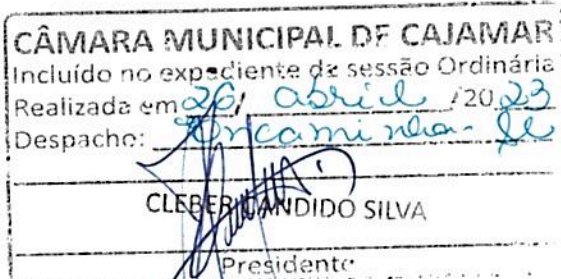 CÂMARA MUNICIPAL DE CAJAMAR
Incluído no expediente da sessão Ordinária
Realizada em 26, abril /2023
Despacho: Encaminha-se
CLEBER CANDIDO SILVA
Presidente